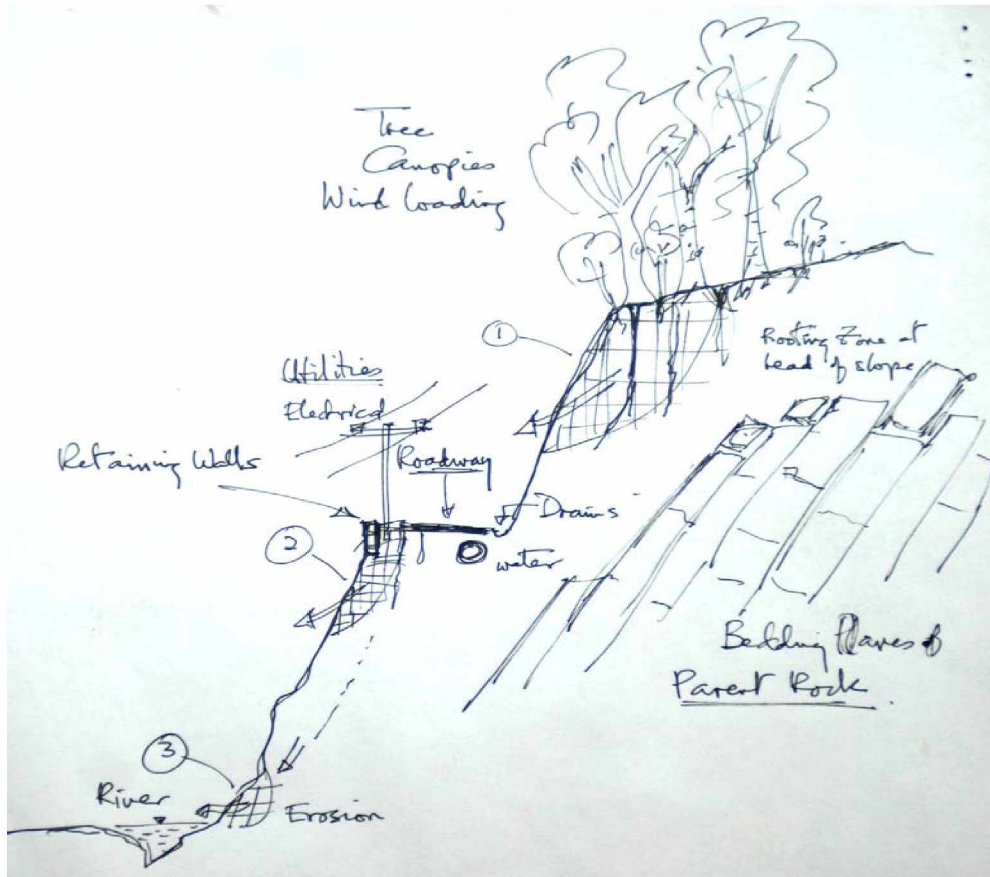 Tree
Canopies
Wind Loading
1
Rooting Zone at
head of slope
Utilities
Electrical
Retaining Walls
Roadway
Drains
2
water
Bedding Planes of
Parent Rock
3
River
Erosion